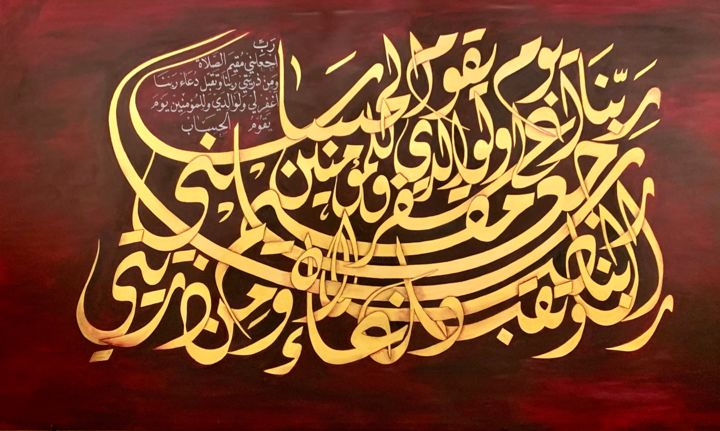 رَبِّ
اجْعَلْنِي مُقِيمَ الصَّلَاةِ
وَمِنْ ذُرِّيَّتِي رَبَّنَا وَتَقَبَّلْ دُعَاءِ رَبَّنَا
اغْفِرْ لِي وَلِوَالِدَيَّ وَلِلْمُؤْمِنِينَ يَوْمَ
يَقُومُ الْحِسَابُ
ربنا اغفر لي ولوالدي وللمؤمنين يوم يقوم الحساب
رب اجعلني مقيم الصلاة
ومن ذريتي ربنا وتقبل دعاء